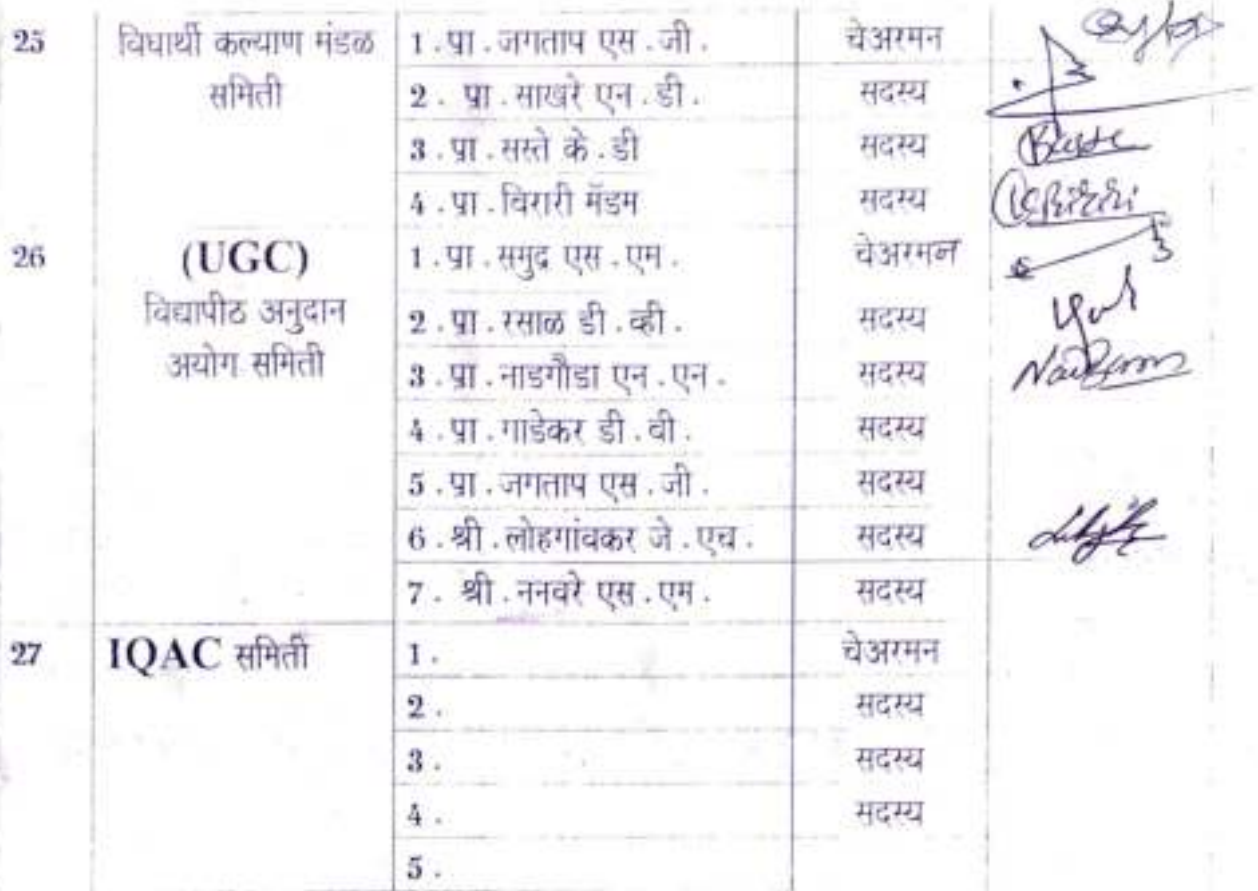 25 विधार्थी कल्याण मंडळ 1.प्रा.जगताप एस.जी. चेअरमन
समिती 2. प्रा.साखरे एन.डी. सदस्य
3.प्रा.सस्ते के.डी सदस्य
4.प्रा.विरारी मॅडम सदस्य
26 (UGC) 1.प्रा.समुद्र एस.एम. चेअरमन
विद्यापीठ अनुदान 2.प्रा.रसाळ डी.व्ही. सदस्य
अयोग समिती 3.प्रा.नाडगौडा एन.एन. सदस्य
4.प्रा.गाडेकर डी.वी. सदस्य
5.प्रा.जगताप एस.जी. सदस्य
6.श्री.लोहगांवकर जे.एच. सदस्य
7. श्री.ननवरे एस.एम. सदस्य
27 IQAC समिती 1. चेअरमन
2. सदस्य
3. सदस्य
4. सदस्य
5.